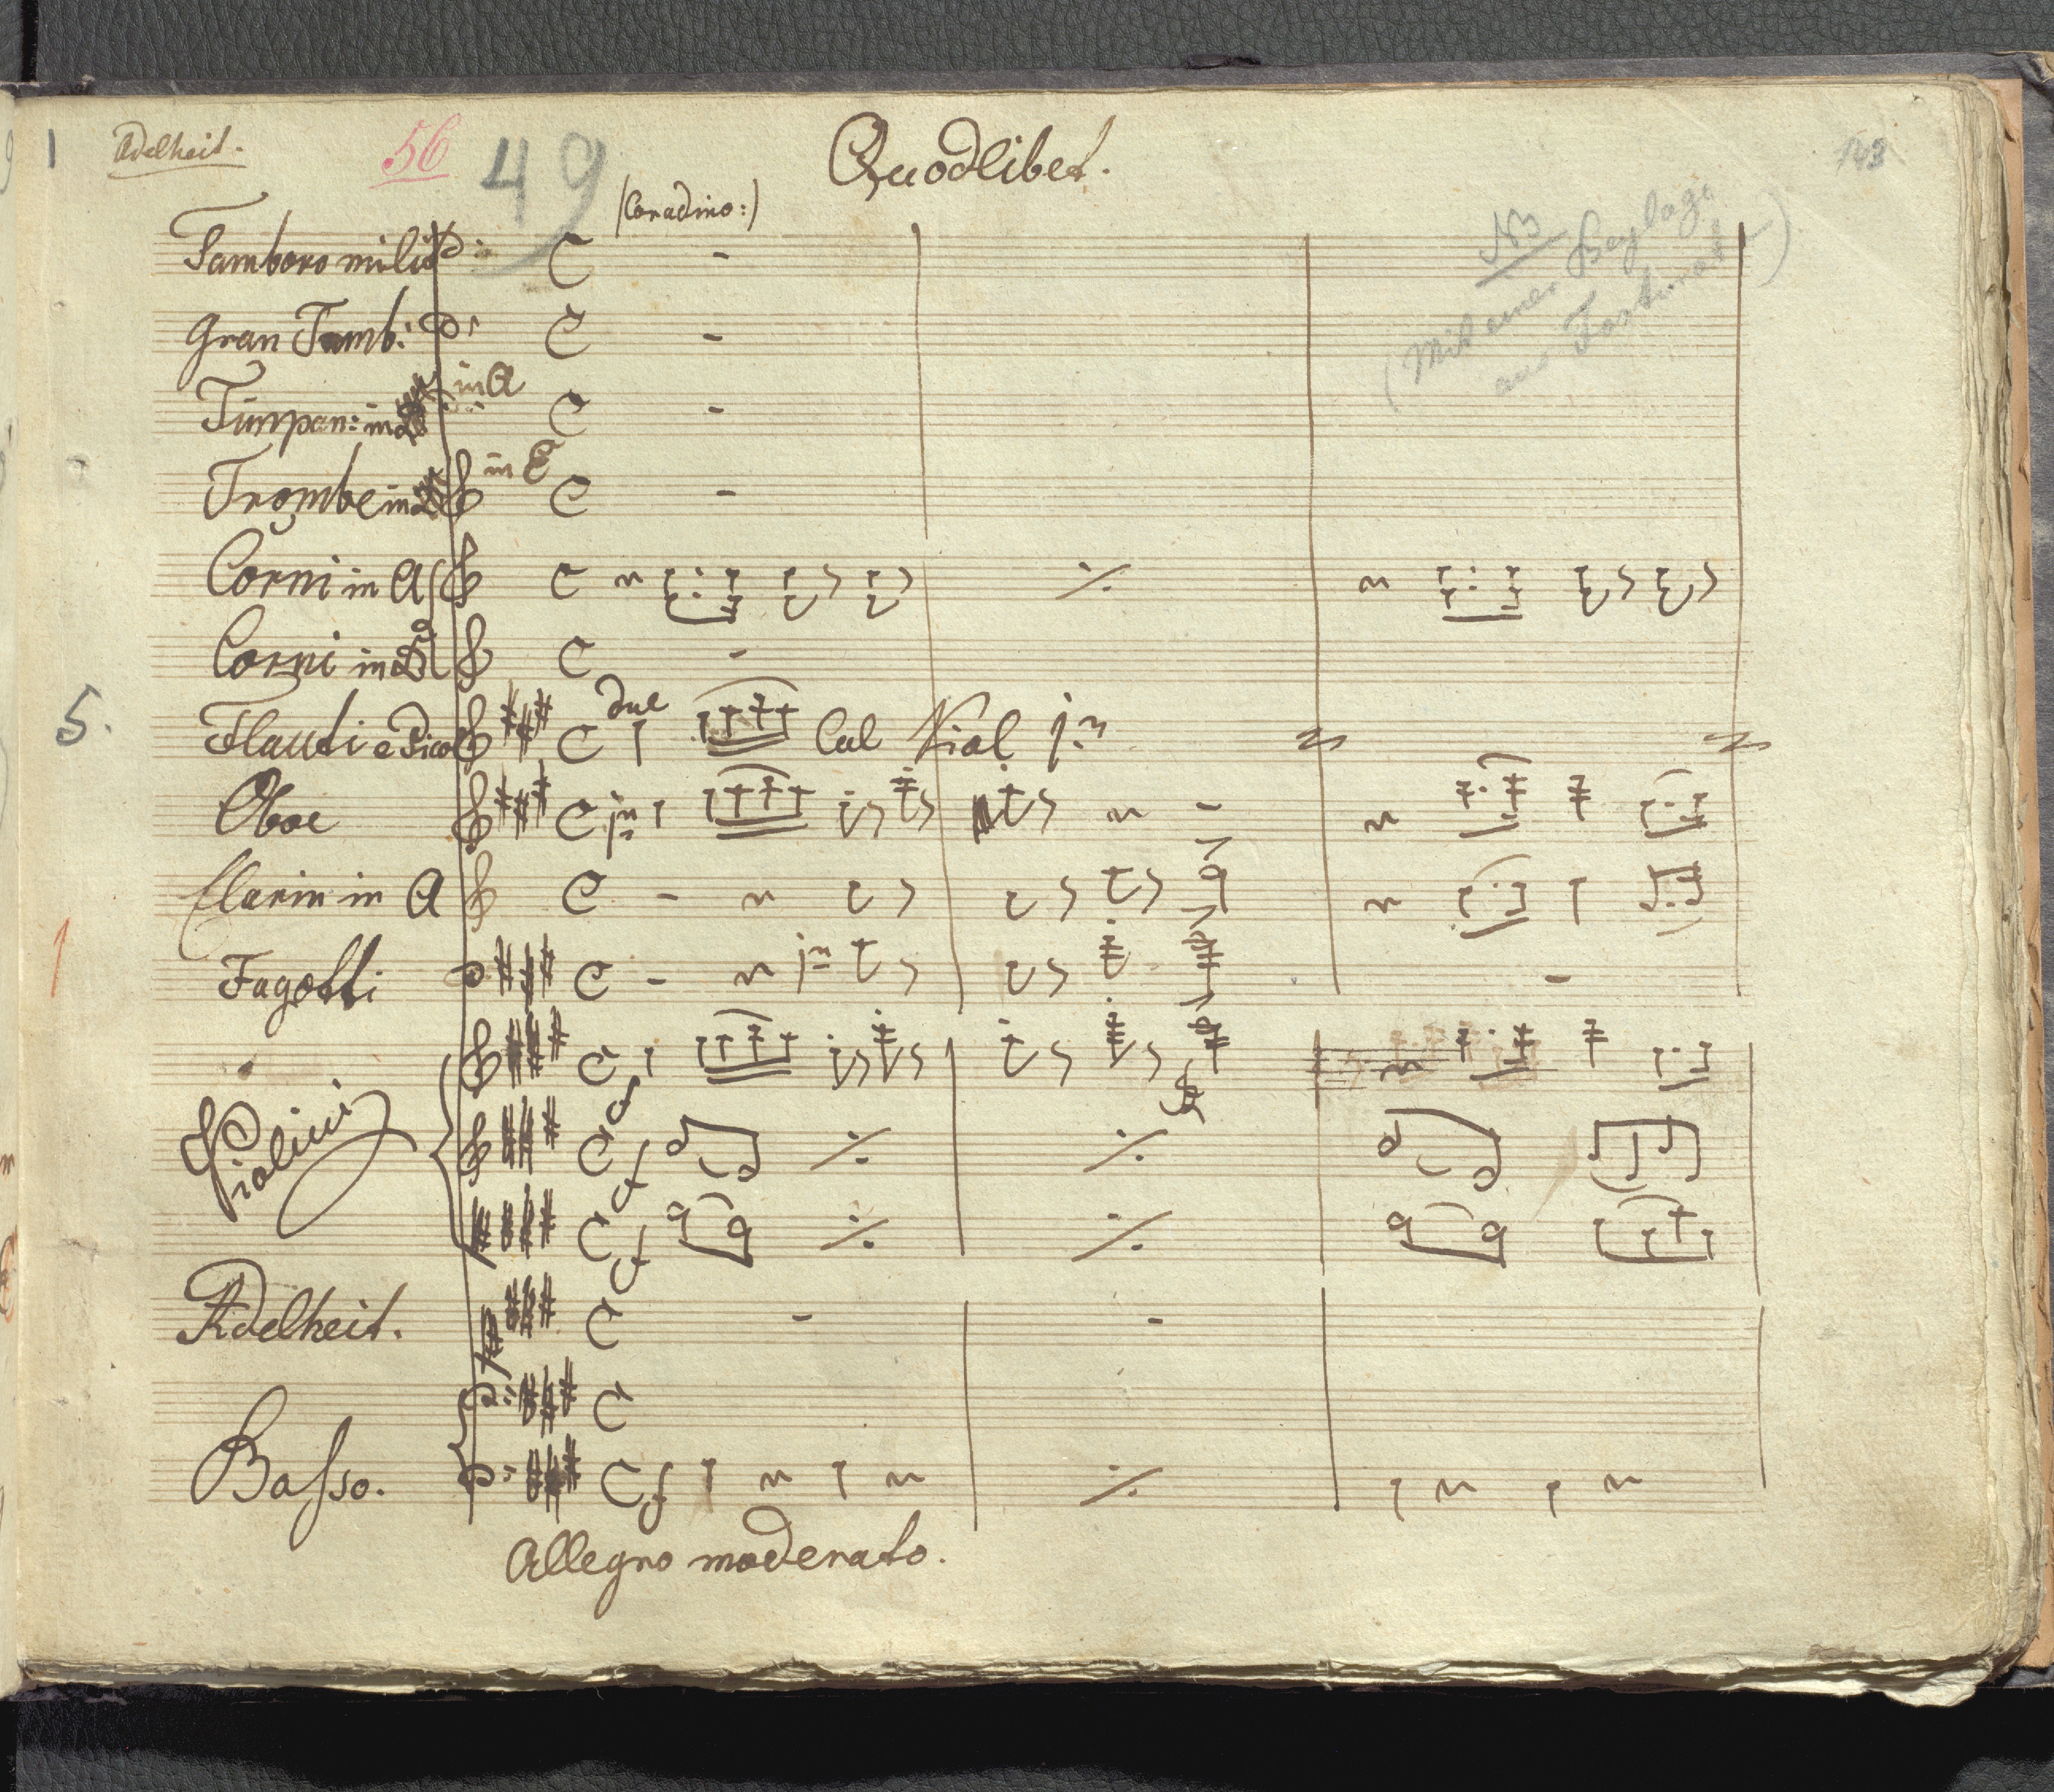 Adelheit.
56
49
Quodlibet.
143
(Coradino:)
N3
(Mit einer Beylage
aus Fortunat)
Tamboro milit:
Gran Tamb:
Timpan: in
in A
Trombe in
in E
Corni in A
Corni in D
5.
Flauti e Picol
due
Col Viol 1mo
Oboe
1mo
Clarin in A
1
Fagotti
1mo
Violini
f
f
f
Adelheit.
Basso.
f
Allegro moderato.